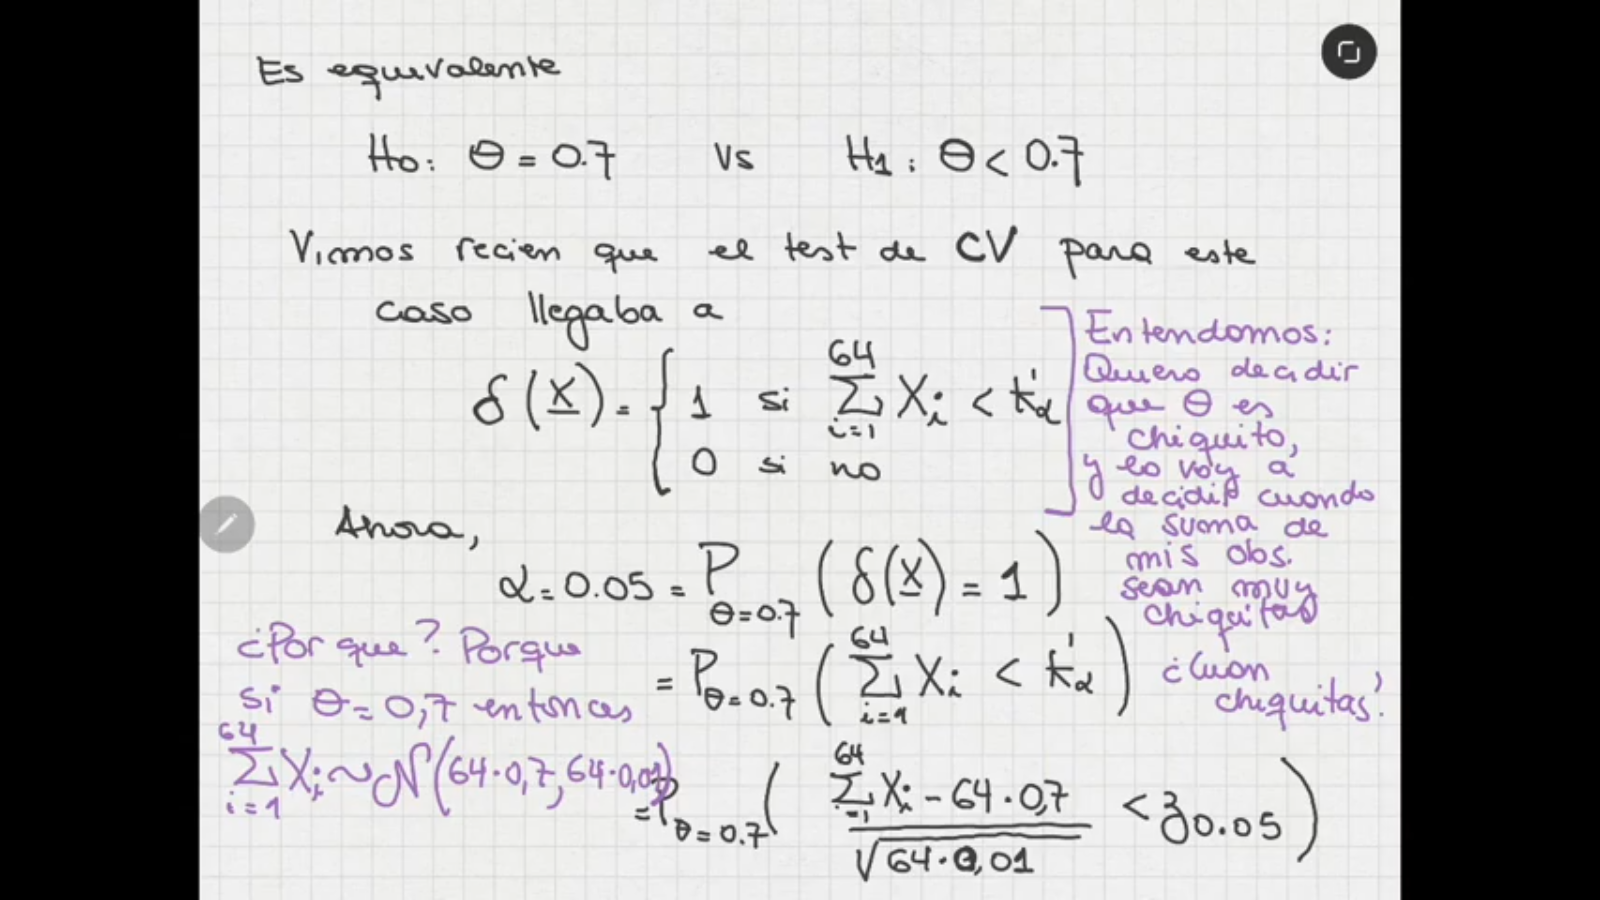 Es equivalente
H0: θ = 0.7 vs H1: θ < 0.7
Vimos recien que el test de CV para este
caso llegaba a
δ(X) = { 1 si ∑_{i=1}^{64} Xi < k'α
0 si no
Entendamos:
Quiero decidir
que θ es
chiquito,
y lo voy a
decidir cuando
la suma de
mis obs.
sean muy
chiquitas
¿Cuan
chiquitas?
Ahora,
α = 0.05 = P_{θ=0.7} (δ(X) = 1)
= P_{θ=0.7} (∑_{i=1}^{64} Xi < k'α)
¿Por que? Porque
si θ = 0,7 entonces
∑_{i=1}^{64} Xi ~ N(64·0,7, 64·0,01)
= P_{θ=0.7} ( (∑_{i=1}^{64} Xi - 64·0,7) / √(64·0,01) < z_{0.05} )